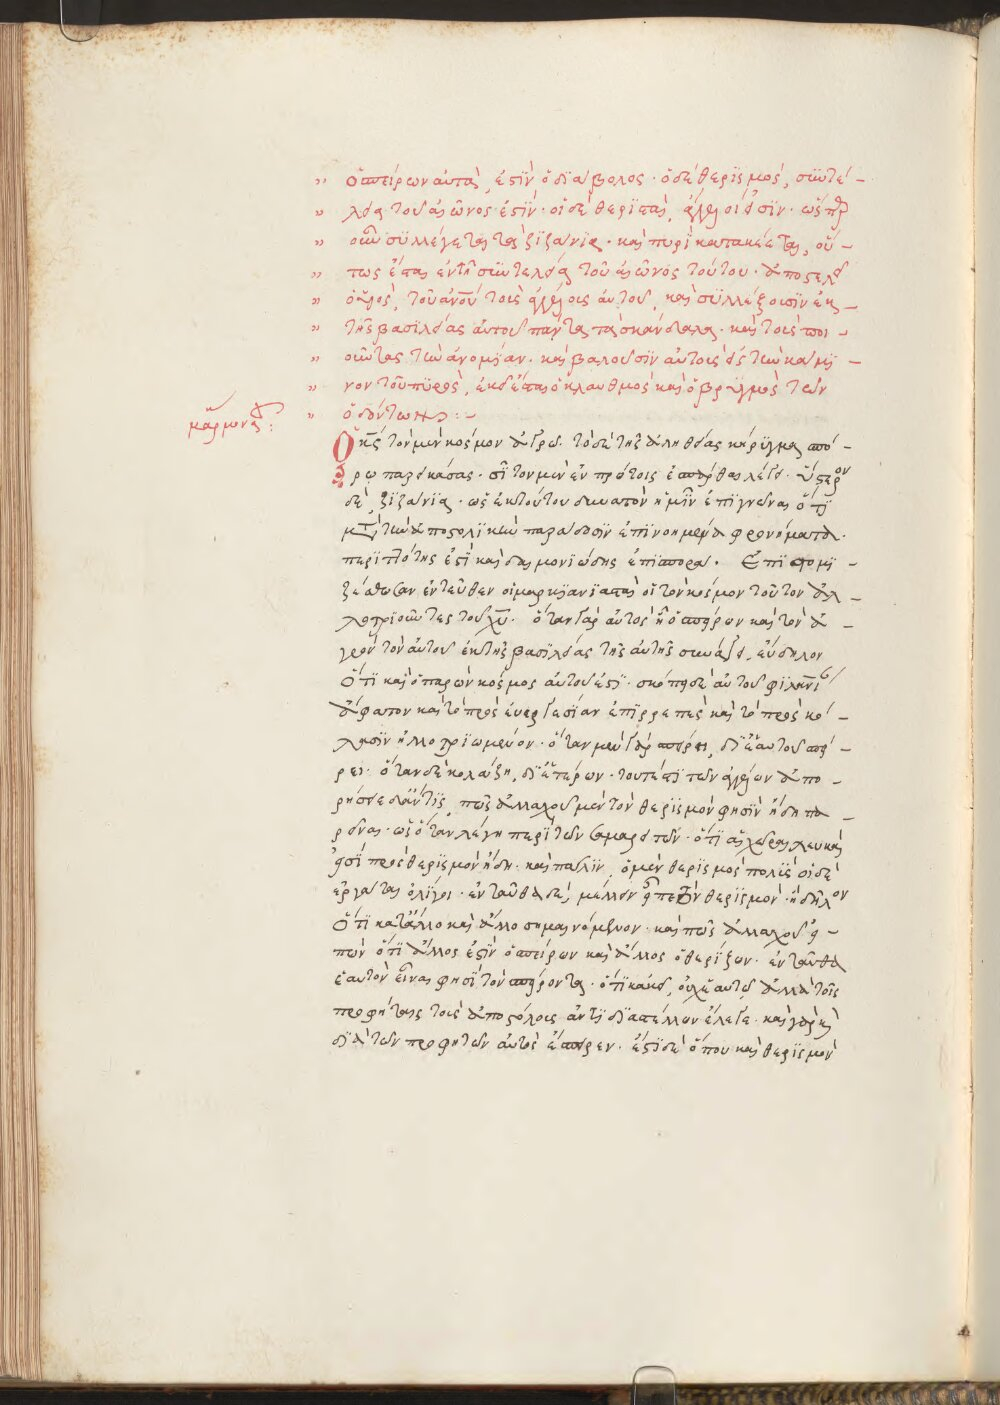 ὁ σπείρων αὐτὰ, ἐστὶν ὁ διάβολος · ὁ δὲ θερισμὸς, συντέ-
λεια τοῦ αἰῶνος ἐστὶν · οἱ δὲ θερισταὶ, ἄγγελοί εἰσιν · ὥσπερ
οὖν συλλέγεται τὰ ζιζάνια · καὶ πυρὶ κατακαίεται, οὕ-
τως ἔσται ἐν τῇ συντελείᾳ τοῦ αἰῶνος τούτου · ἀποστελεῖ
ὁ υἱὸς τοῦ ἀνου τοὺς ἀγγέλους αὐτοῦ, καὶ συλλέξουσιν ἐκ
τῆς βασιλείας αὐτοῦ πάντα τὰ σκάνδαλα · καὶ τοὺς ποι-
οῦντας τὴν ἀνομίαν · καὶ βαλοῦσιν αὐτοὺς εἰς τὴν κάμι-
νον τοῦ πυρὸς, ἐκεῖ ἔσται ὁ κλαυθμὸς καὶ ὁ βρυγμὸς τῶν
ὀδόντων :-
Ὁ κς τὸν μὲν κόσμον ἀγρῷ · τὸ δὲ τῆς ἀληθείας κήρυγμα σπό-
ρῳ παρεικάσας · σῖτον μὲν ἐν πρώτοις ἐσπάρθαι λέγει · ὕστερον
δὲ, ζιζάνια · ὡς ἐκ τούτου δυνατὸν ἡμῖν ἐπιγνῶναι ὅτι
τὴν ἀποστολικὴν παράδοσιν ἐπινοημένα φρονήματα ·
περιττότης ἐστὶ καὶ δαιμονιώδης ἐπισπορά ·
ἐντεῦθεν οἱ μαρκιανισταὶ οἱ τὸν κόσμον τοῦτον ἀλ-
λοτριοῦντες τοῦ χυ · ὅταν γὰρ αὐτὸς ᾖ ὁ σπείρων καὶ τὸν ἀ-
γρὸν τὸν αὐτοῦ ἐκ τῆς βασιλείας τῆς αὐτῆς συνάγει, εὔδηλον
ὅτι καὶ ὁ παρὼν κόσμος αὐτοῦ ἐστι · σκόπησε αὐτοῦ
ἄφατον καὶ τὸ πρὸς εὐεργεσίαν ἐπιρρεπὲς καὶ τὸ πρὸς κό-
λασιν ἠλλοτριωμένον · ὅταν μὲν γὰρ σπείρει, δι' ἑαυτοῦ σπεί-
ρει · ὅταν δὲ κολάζῃ, δι' ἑτέρων · τουτέστι τῶν ἀγγέλων
πῶς ἀλλαχοῦ μὲν τὸν θερισμὸν φησὶν ἤδη πα-
ρεῖναι · ὡς ὅταν λέγῃ περὶ τῶν σαμαρειτῶν · ὅτι αἱ χῶραι λευκαί
εἰσὶ πρὸς θερισμὸν ἤδη · καὶ πάλιν, ὁ μὲν θερισμὸς πολὺς οἱ δὲ
ἐργάται ὀλίγοι · ἐνταῦθα δὲ, μέλλειν εἶπε τὸν θερισμὸν · ἢ δῆλον
ὅτι κατ' ἄλλο καὶ ἄλλο σημαινόμενον · καὶ πῶς ἀλλαχοῦ εἰ-
πὼν ὅτι ἄλλος ἐστὶν ὁ σπείρων καὶ ἄλλος ὁ θερίζων · ἐνταῦθα
ἑαυτὸν εἶναι φησὶ τὸν σπείροντα · ὅτι κἀκεῖ, οὐχ ἑαυτῷ ἀλλὰ τοῖς
προφήταις τοὺς ἀποστόλους ἀντιδιαστέλλων ἔλεγε · καὶ γὰρ καὶ
διὰ τῶν προφητῶν αὐτὸς ἔσπειρεν · ἔστι δὲ ὅπου καὶ θερισμὸν